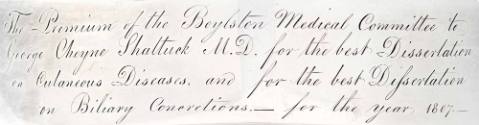 The Premium of the Boylston Medical Committee to
George Cheyne Shattuck M.D. for the best Dissertation
on Cutaneous Diseases, and for the best Dissertation
on Biliary Concretions.— for the year 1807.—